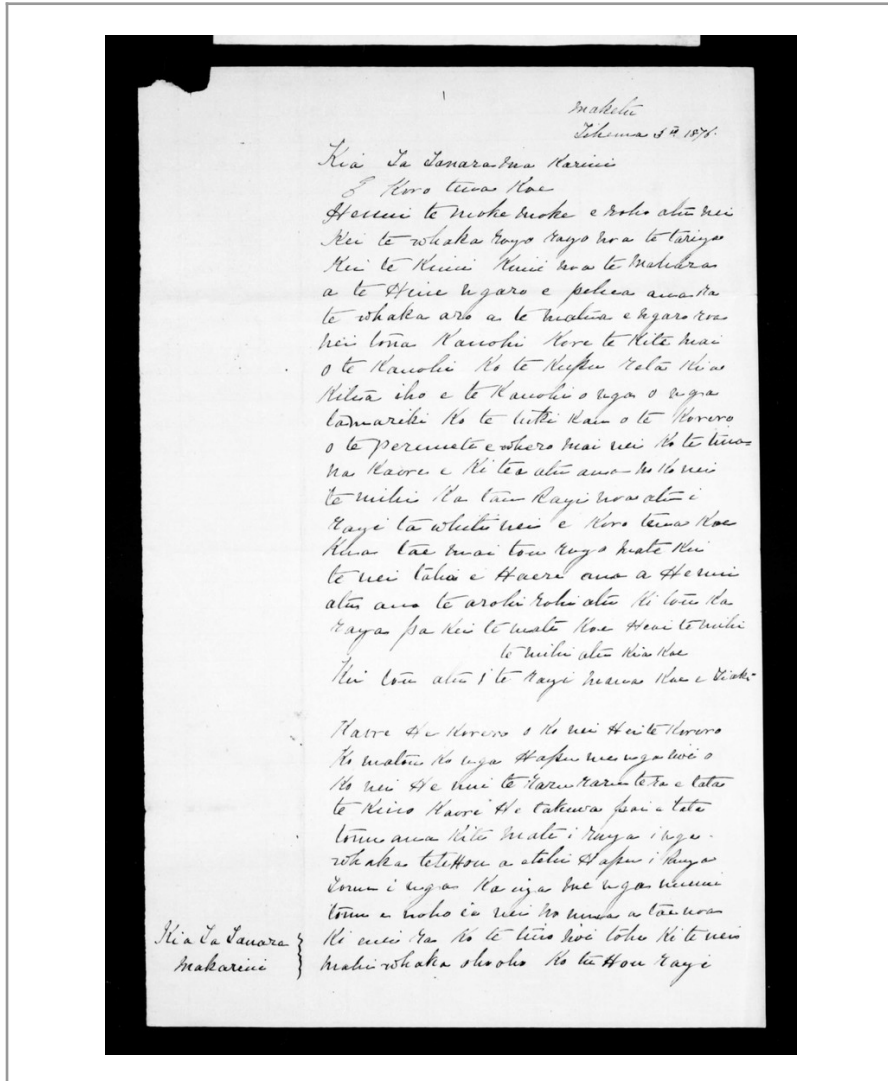 Maketu
Tihema 5th 1876.
Kia Ta Tanara Ma Karini
E Koro tena Koe
He nui te moke moke e noho atu nei
Kei te whaka rogo rogo noa te tariga
Kei te Kimi Kimi noa te Mahara
a te Hine ngaro e pehea ana ra
te whaka aro a te matua e ngaro roa
nei tona Kanohi Kore te Kite mai
o te Kanohi Ko te Kupu reta Kia
Kitea iho e te Kanohi o nga o nga
tamariki Ko te Kau o te Korero
o te perimete e mai nei Ko te tina
na Kaore e Ki tea atu ana no Ko nei
te mihi Ka tau Ragi noa atu i
ragi ta whiti nei e Koro tena Koe
Kua tae mai tou rogo mate Kei
te nei taha e Haere ana a He nui
atu ana te arohi rohi atu Ki tou Ka
raga pa Kei te mate Koe Heoi te mihi
te mihi atu Kia Koe
Kei tou atu i te ragi mana Koe e tiaki

Kaore He Korero o Ko nei Heoi te Korero
Ko matou Ko nga Hapu me nga iwi o
Ko nei He nui te raru raru te ra e tata
te Kino Kaore He takiwa pai e tata
tonu ana Kite mate i ruga i nga
whaka tete Hou a etehi Hapu i ruga
tonu i nga Ka iga me nga
tonu e noho ia nei no mua a tae noa
Ki enei ra Ko te tino iwi tohe Ki te nei
mahi whaka oho oho Ko te Hou ragi
Kia Ta Tanara
Makarini